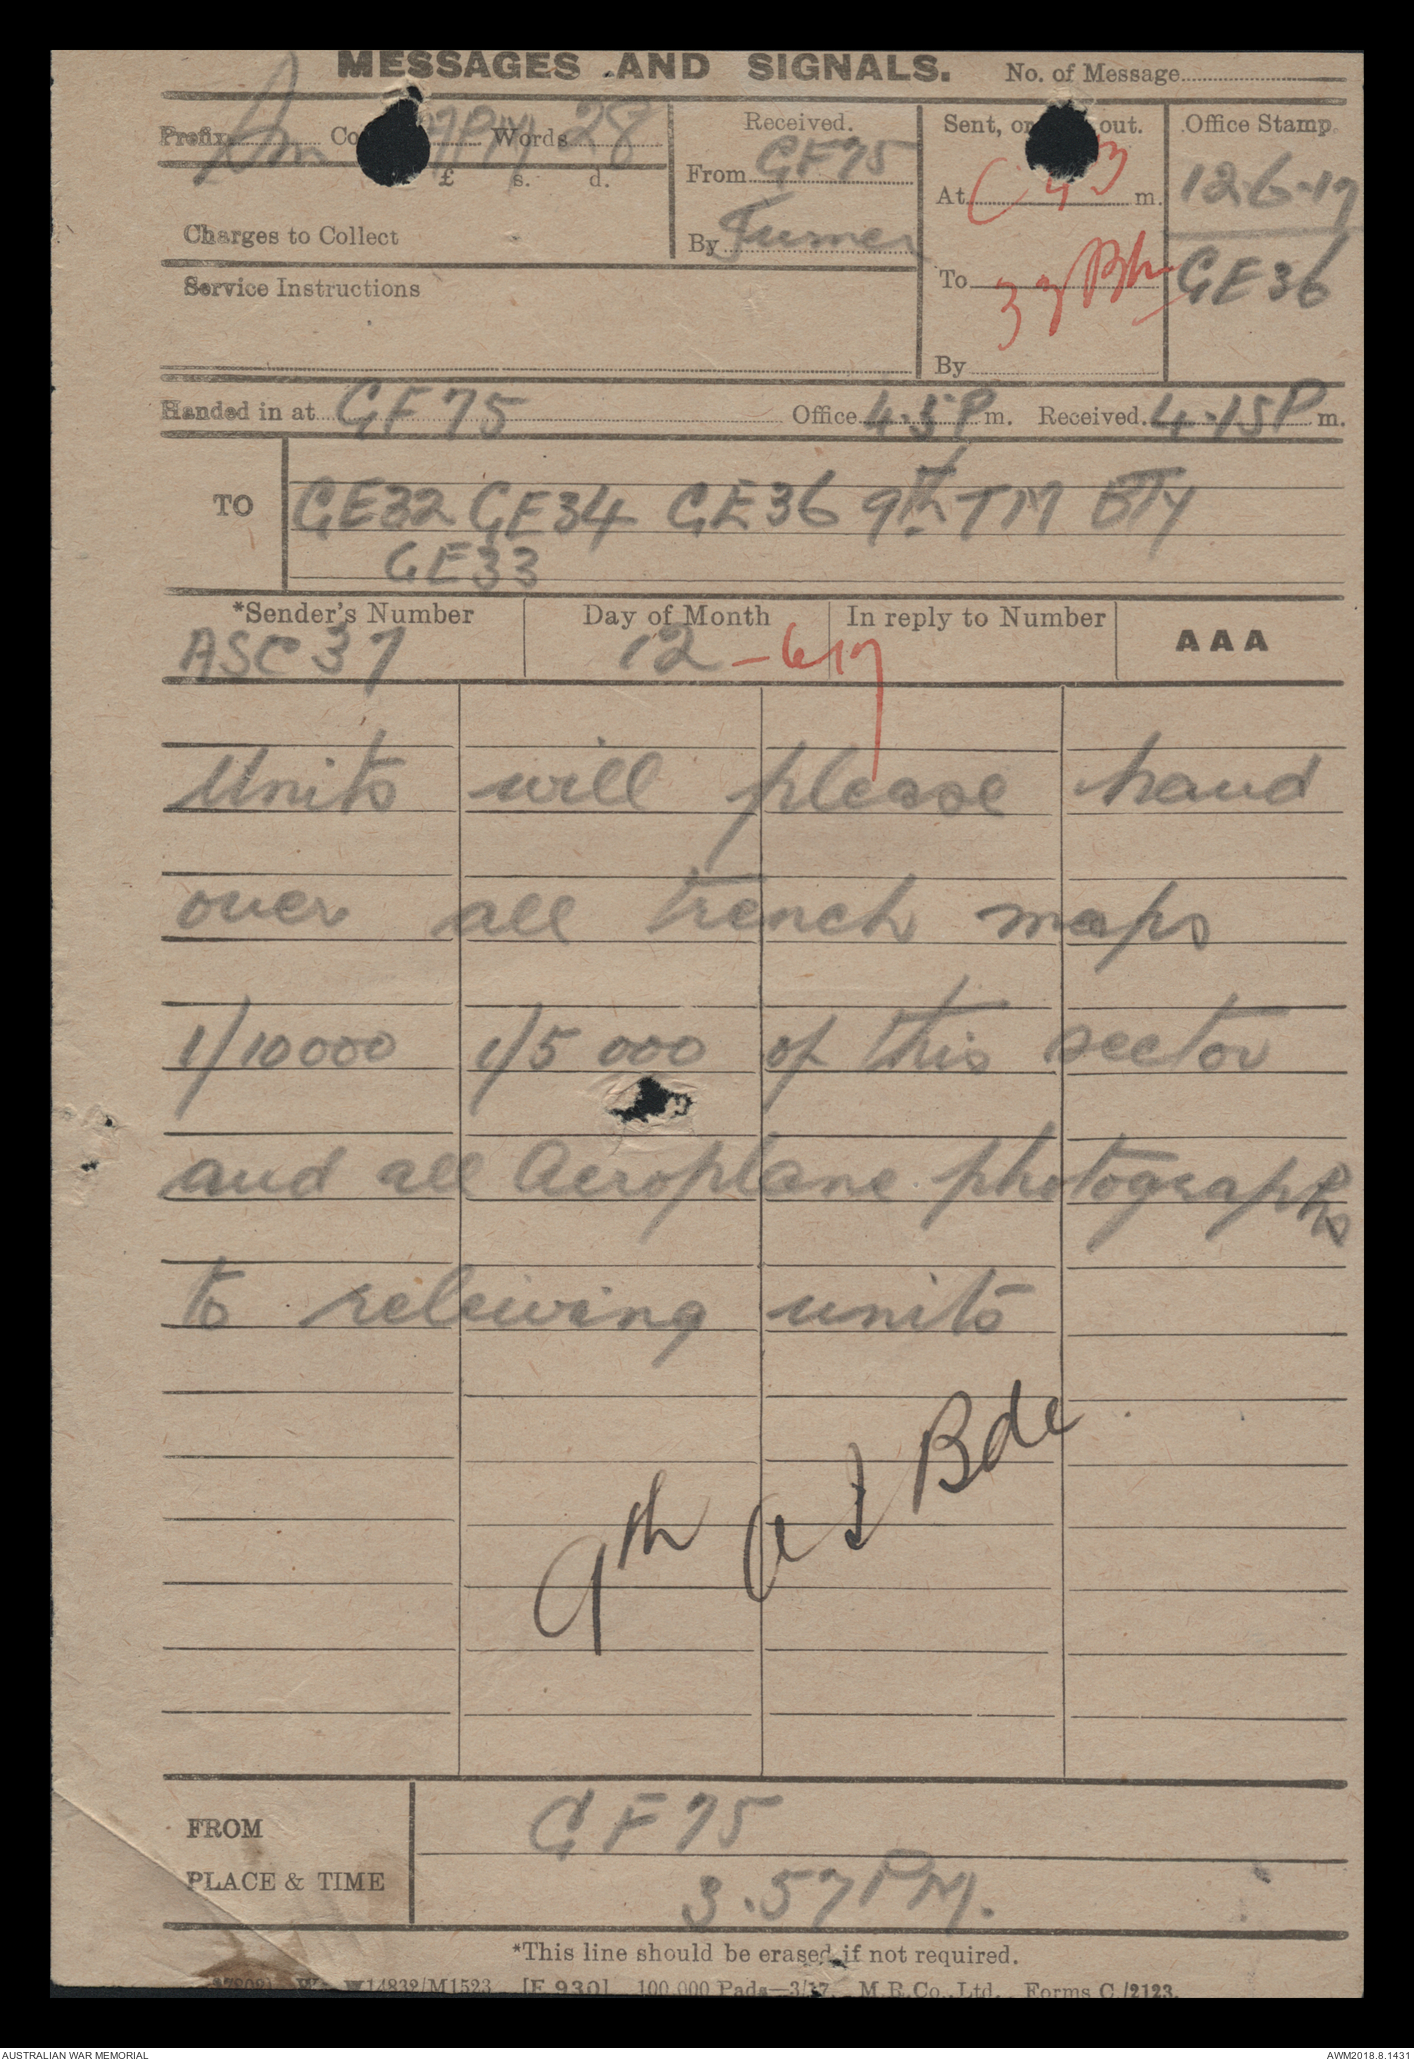 MESSAGES AND SIGNALS. No. of Message
Prefix Sm Co Words 28
£ s. d.
Charges to Collect
Service Instructions
Received.
From GF75
By Turner
Sent, or out.
At m.
To 33 Bn
By
Office Stamp
12.6.17
GE36
Handed in at GF75 Office 4.5 P m. Received 4.15 P m.
TO GE32 GE34 GE36 9th TM BTY
GE33
*Sender's Number Day of Month In reply to Number AAA
ASC 37 12 -6/17
Units will please hand
over all trench maps
1/10000 1/5000 of this sector
and all Aeroplane photographs
to releiving units
9th A I Bde
FROM GF75
PLACE & TIME 3.57 PM.
*This line should be erased if not required.
W14832/M1523 [E 930] 100,000 Pads—3/17 M.R.Co., Ltd. Forms C/2123.
AUSTRALIAN WAR MEMORIAL AWM2018.8.1431